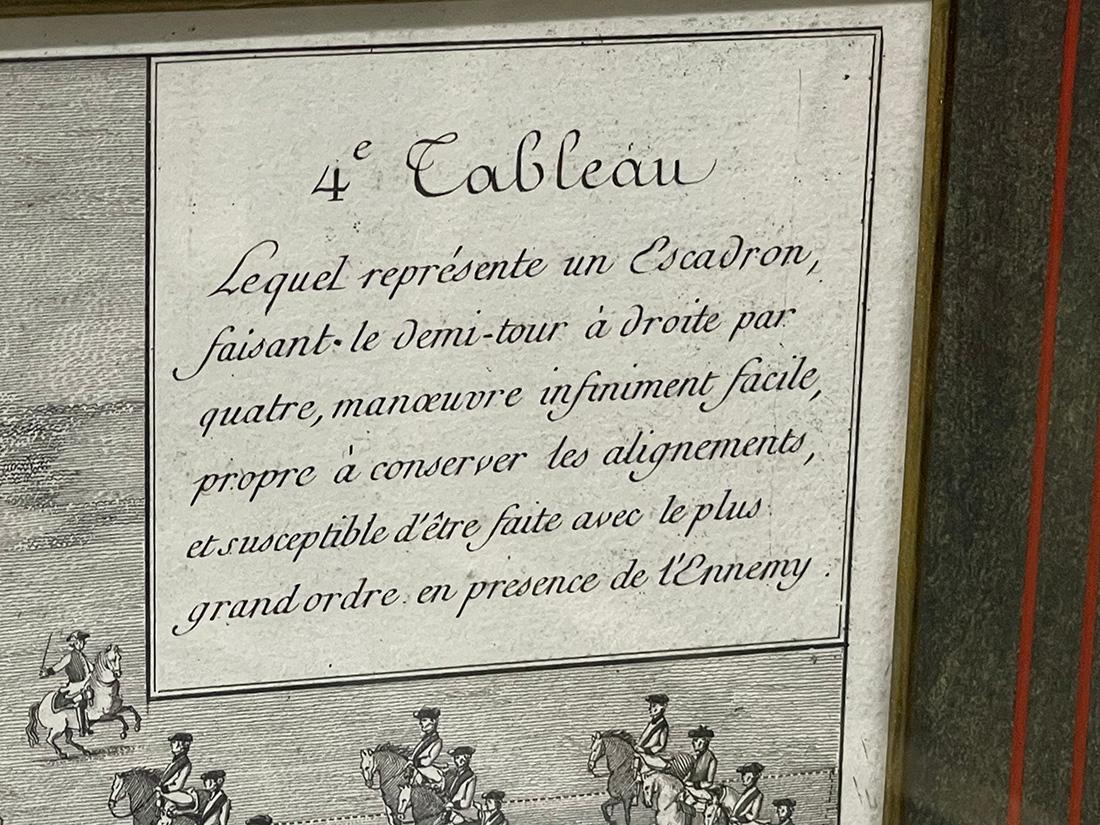 4e Tableau
Lequel représente un Escadron,
faisant le demi-tour à droite par
quatre, manœuvre infiniment facile,
propre à conserver les alignements,
et susceptible d'être faite avec le plus
grand ordre en presence de l'Ennemy.